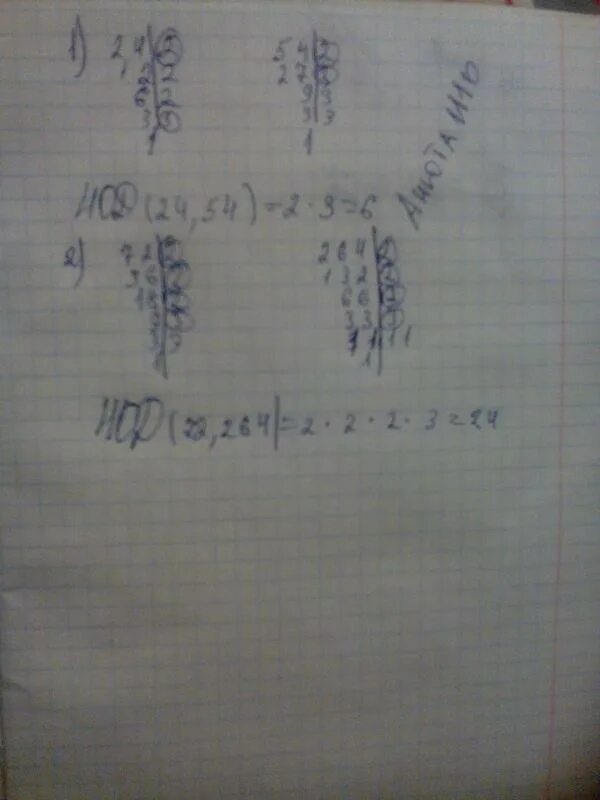 1) 24|2 54|2
12|2 27|3
6|2 9|3
3|3 3|3
1 1
НОД (24,54)=2·3=6
2) 72|2 264|2
36|2 132|2
18|2 66|2
9|3 33|3
11|11
1
НОД (72,264)=2·2·2·3=24